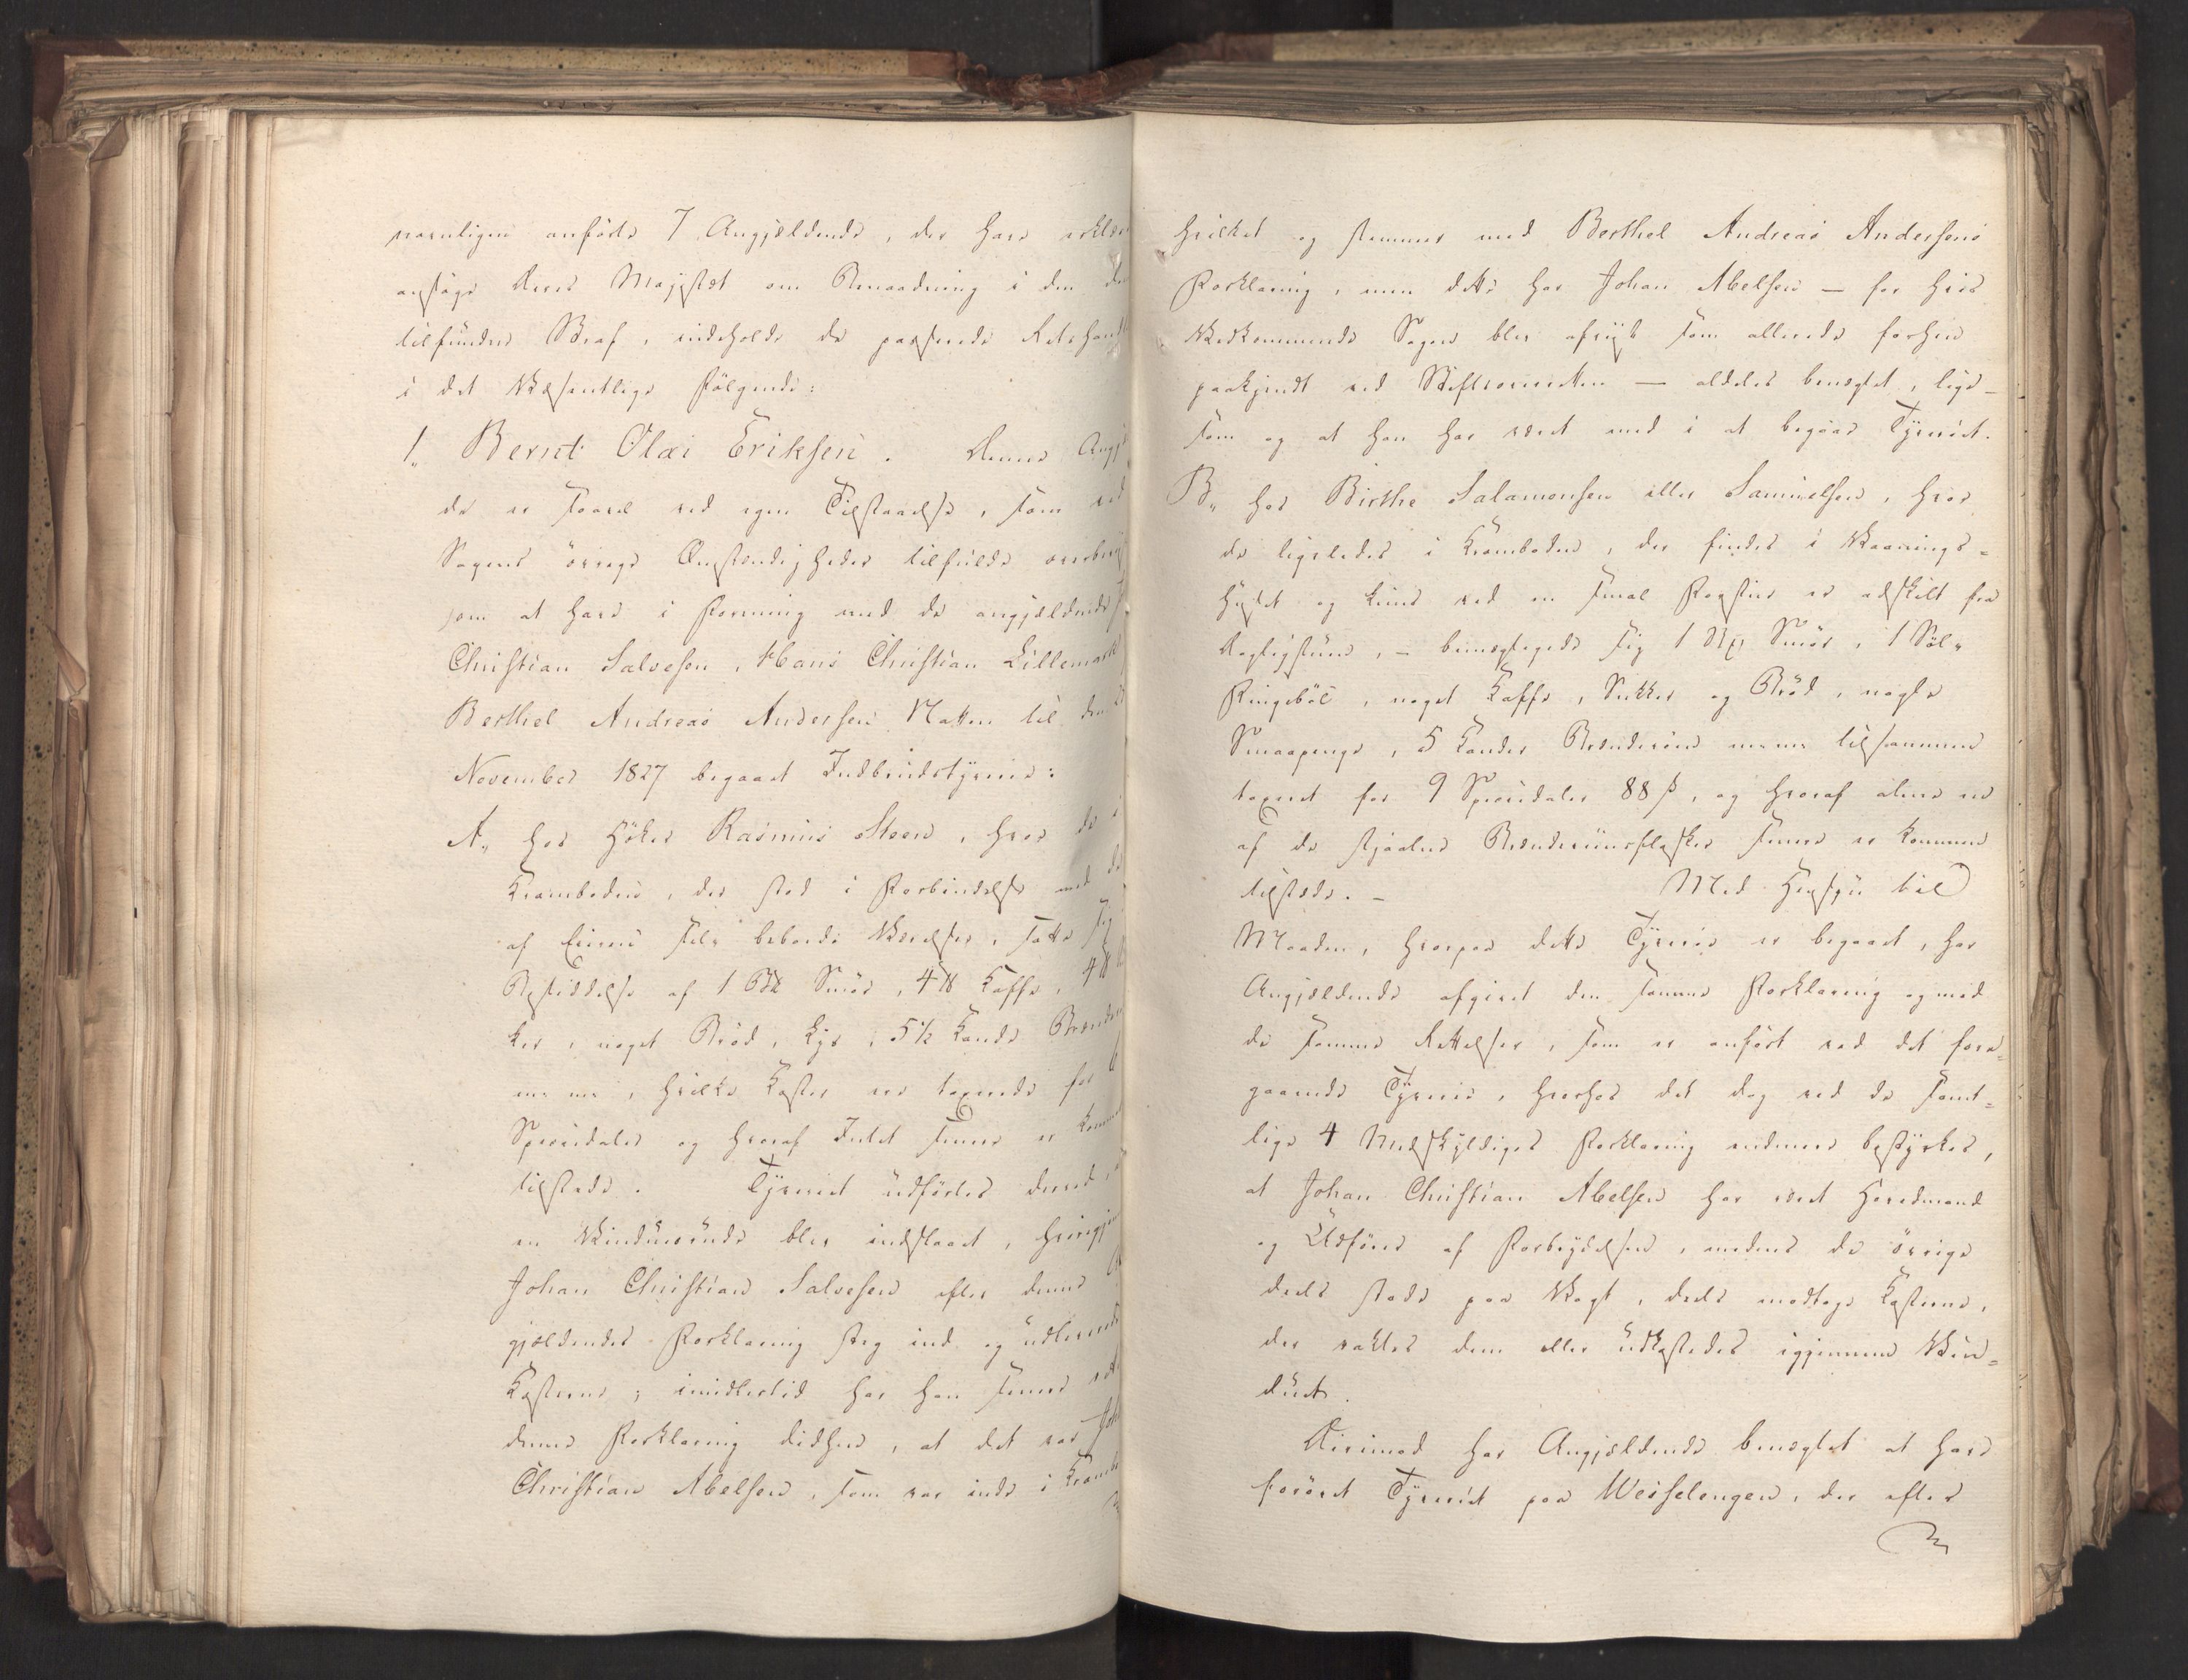 navnligen anførte 7 Angjældende, der have erklær
ansøge Deres Majestæt om Benaadning i den dem
tilfundne Straf, indeholde de passerede Retshandl
i det Væsentlige Følgende:
1, Bernt Olai Eriksen. Denne Angjæ
de er saavel ved egen Tilstaaelse, som ved
Sagens øvrige Omstændigheder tilfulde overbeviist
om at have i Forening med de angjældende J
Christian Salvesen, Hans Christian Lillemark
Berthel Andreas Andersen Natten til den 25
November 1827 begaaet Indbrudstyverie:
A, hos Høker Rasmus Steen, hvor de i
Kramboden, der stod i Forbindelse med de
af hunn selv beboede Værelser, satte sig
Besiddelse af 1 Btl Smør, 4 ℔ Kaffe, 4 ℔
ker, noget Brød, Lys, 5½ Kande Brænde
m: m:, hvilke Koster ere taxerede for 6
Speciedaler og hvoraf Intet senere er komme
tilstede. Tyveriet udførtes derved,
en Vinduesrude blev indslaaet, hvorigjen
Johan Christian Salvesen efter denne A
gjældendes Forklaring steg ind og udleverede
Kosterne; imidlertid har han senere rett
denne Forklaring didhen, at det var Joh
Christian Abelsen, som var inde i Krambo
hvilket og stemmer med Berthel Andreas Andersens
Forklaring, men dette har Johan Abelsen — for hvis
Vedkommende Sagen blev afsagt som allerede forhen
paakjendt ved Stiftsoverretten — aldeles benægtet, lige-
som og at han har været med i at begaae Tyveriet.
B, hos Birthe Salamonsen eller Samuelsen, hvor
de ligeledes i Kramboden, der findes i Vaanings=
huset og kuns ved en smal Forstue er adskilt fra
Dagligstuen, – bemægtigede sig 1 Btl Smør, 1 Søl-
Ringebøl, noget Kaffe, Sukker og Brød, nogle
Smaapenge, 5 Kander Brændeviin m: m: tilsammen
taxeret for 9 Speciedaler 88 ß, og hvoraf alene en
af de stjaalne Brændeviinsflasker senere er kommen
tilstede. – Med Hensyn til
Maaden, hvorpaa dette Tyverie er begaaet, har
Angjældende afgivet den samme Forklaring og med
de samme Rettelser, som er anført ved det fore=
gaaende Tyverie, hvorhos det dog ved de samt=
lige 4 Medskyldiges Forklaring endmere bestyrkes,
at Johan Christian Abelsen har været Hovedmand
og Udfører af Forbrydelsen, medens de øvrige
deels stode paa Vagt, deels modtoge Kosterne,
der raktes dem eller udkastedes igjennem Vin=
duet.
Derimod har Angjældende benægtet at have
forøvet Tyveriet paa Weiselengen, der efter